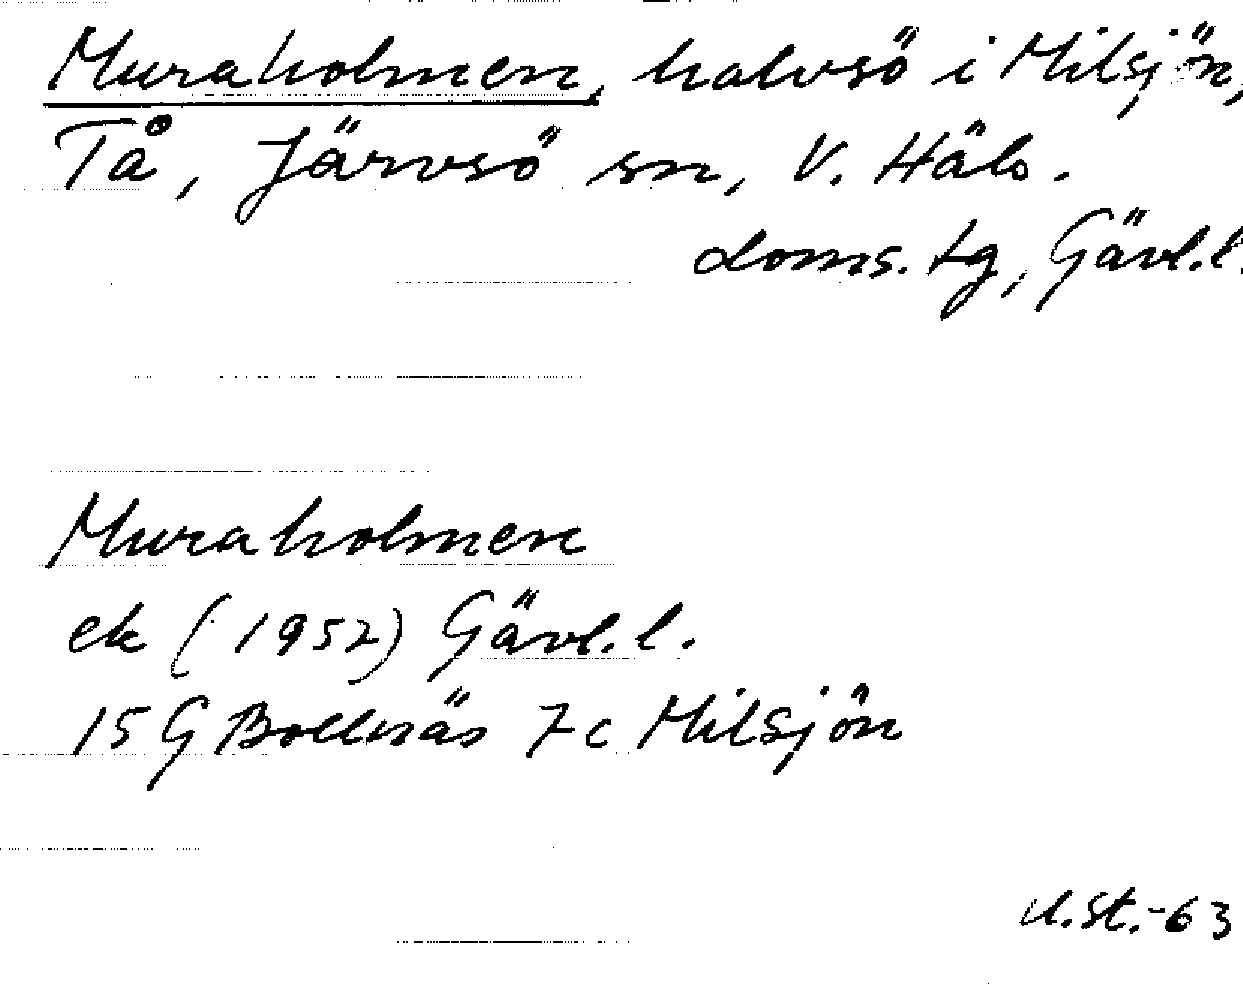 Muraholmen, halvsö i Milsjön,
Tå, Järvsö sn, V. Häls.
doms. tg, Gävl.l.
Muraholmen
ek (1952) Gävl.l.
15 G Bollnäs 7c Milsjön
U.St.-63